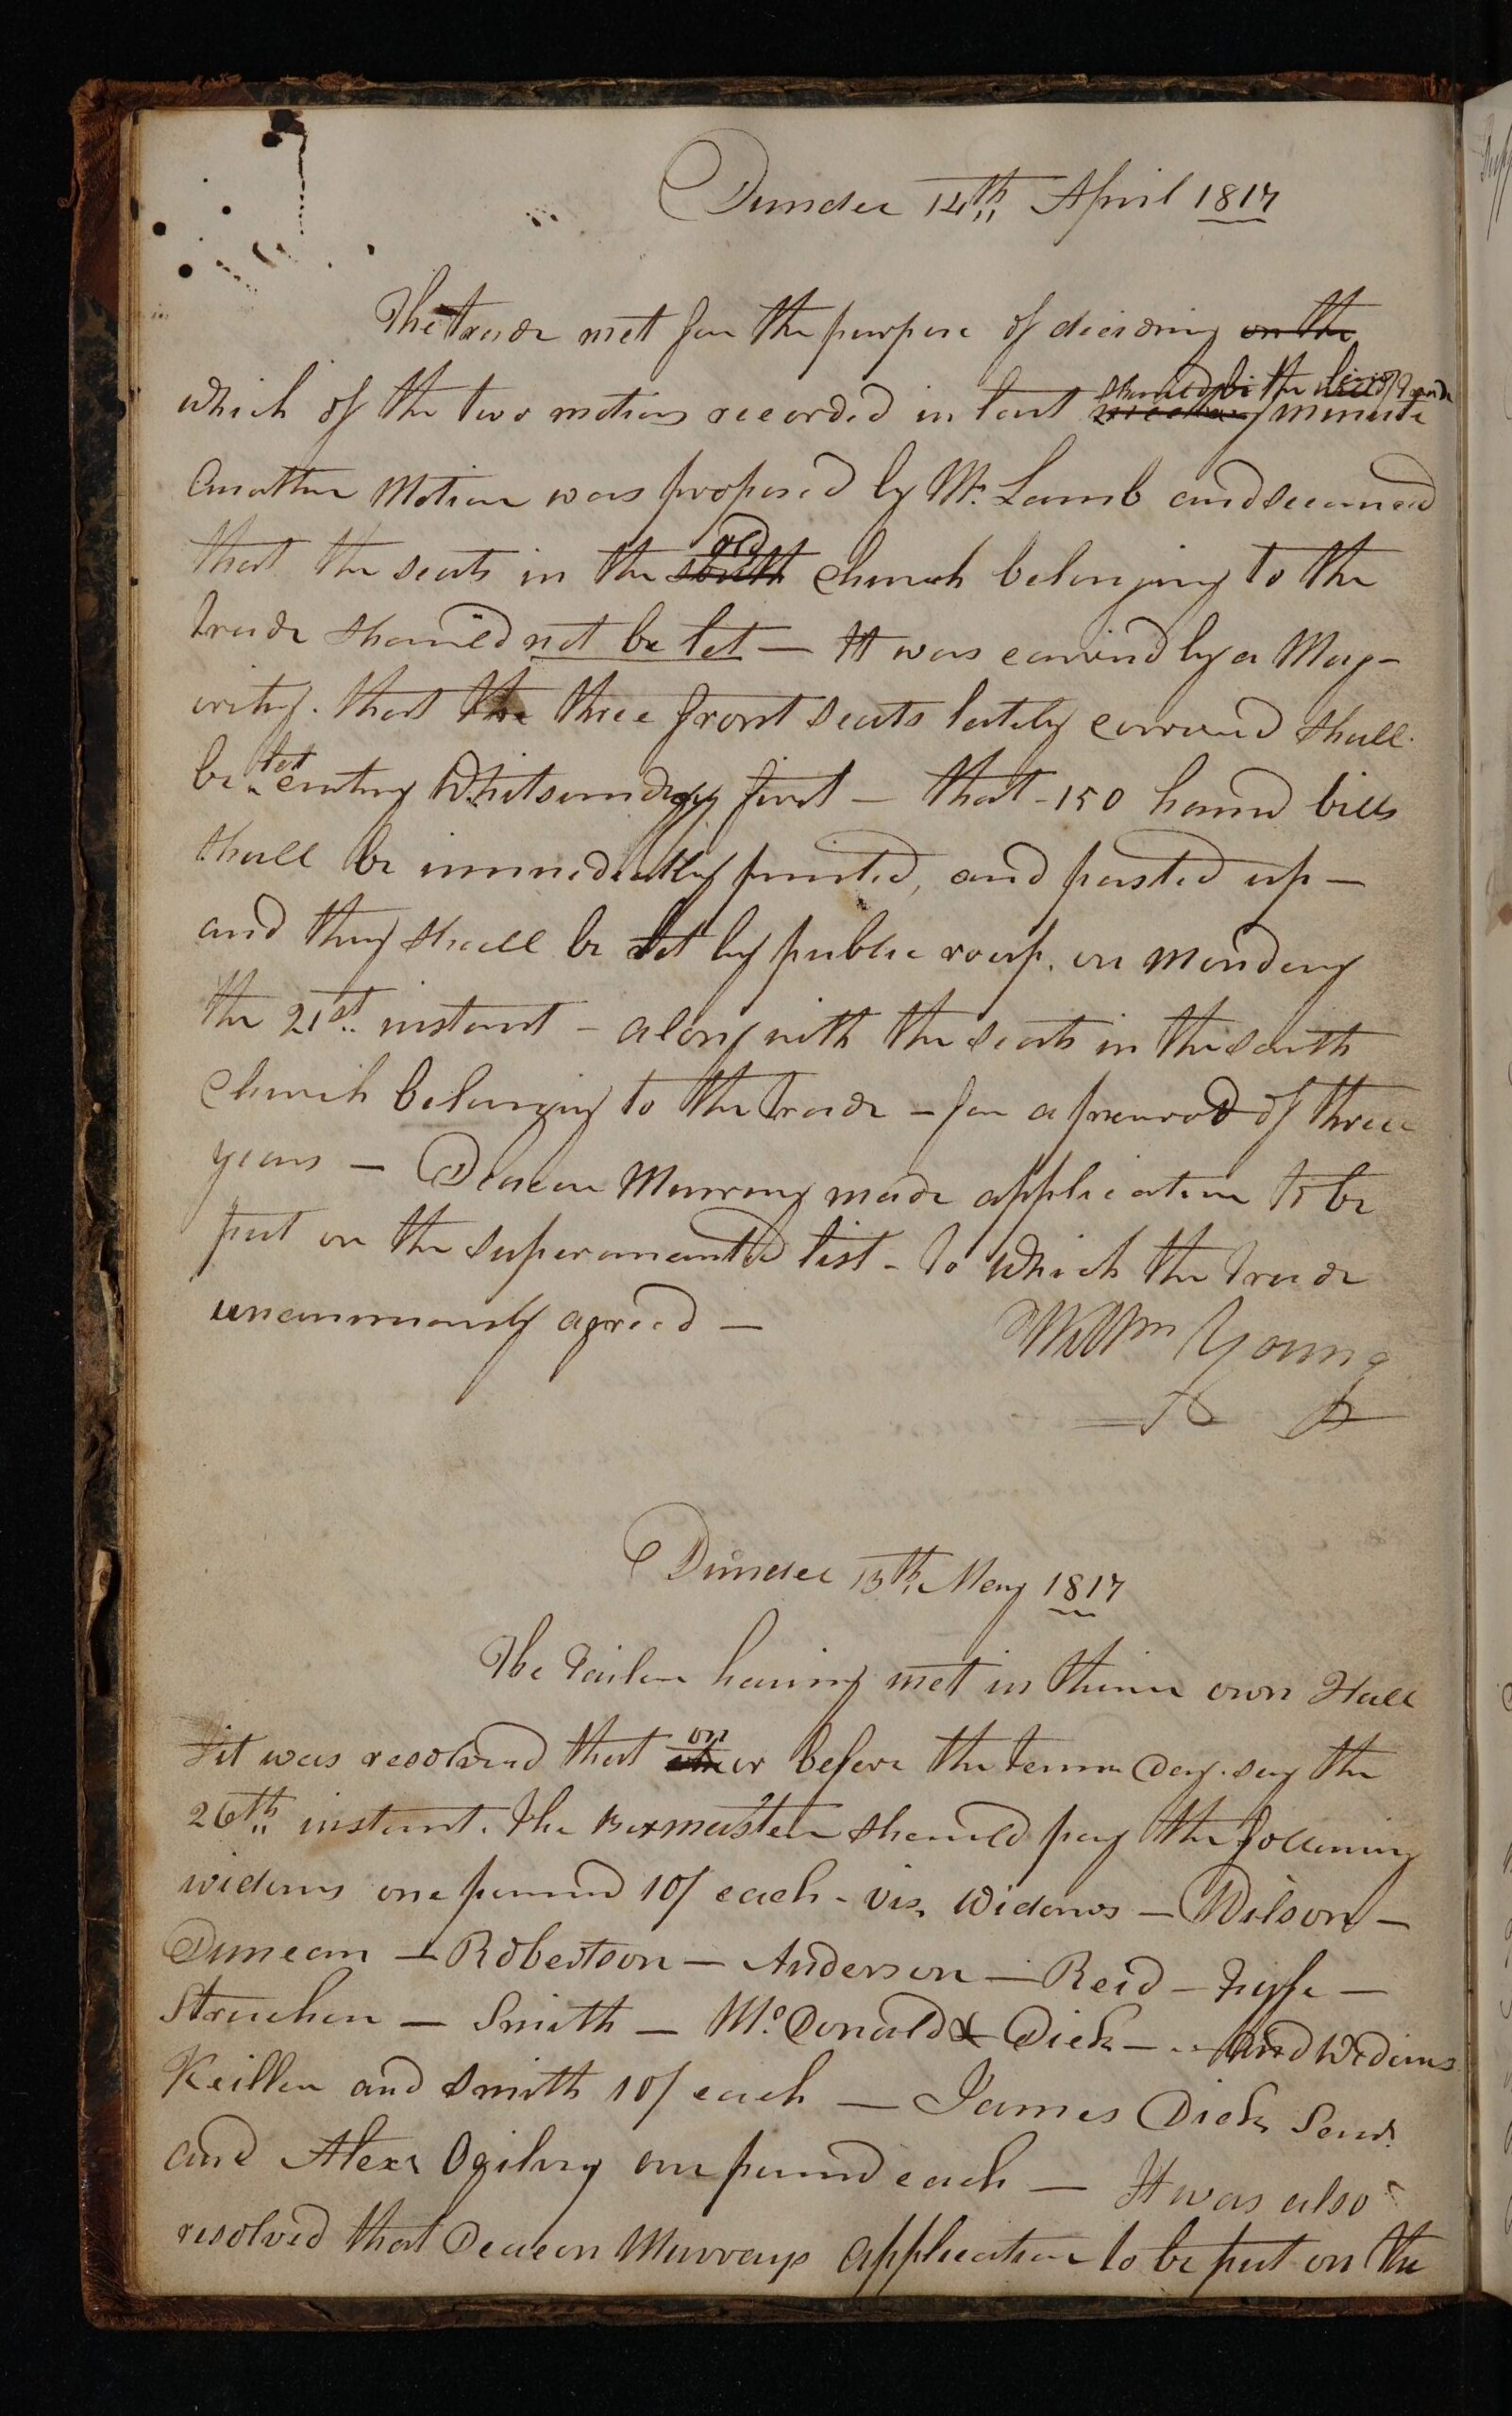 Dundee 14th April 1817
The trade met for the purpose of deciding on the
which of the two motions recorded in last meeting minute
should be the of trade
Another Motion was proposed by Mr. Lamb and secconed
that the seats in the south old church belonging to the
trade should not be let — It was carried by a Maj-
ority. that the three front seats lately corroved shall
be let entery Whitsunday first — that - 150 hand bills
shall be immediatly printed, and pasted up —
and they shall be let by public roup. on monday
the 21st instant — along with the seats in the south
Church belonging to the trade — for a period of three
years — Deacon Murray made application to be
put on the superanuated list - to which the trade
unanimously agreed —
Willm Young
Dundee 13th May 1817
The Tailor having met in their own Hall
it was resolved that on or before the term day. say the
26th instant. the Boxmaster should pay the following
widows one pound 10/ each - viz. Widows — Wilson —
Duncan — Robertson — Anderson — Reid — Fyffe —
Strachen — Smith — McDonald & Dick — and Widows
Keiller and Smith 10/ each — James Dick Senr.
and Alexr Ogilvy one pound each — It was also
resolved that Deacon Murrays application to be put on the